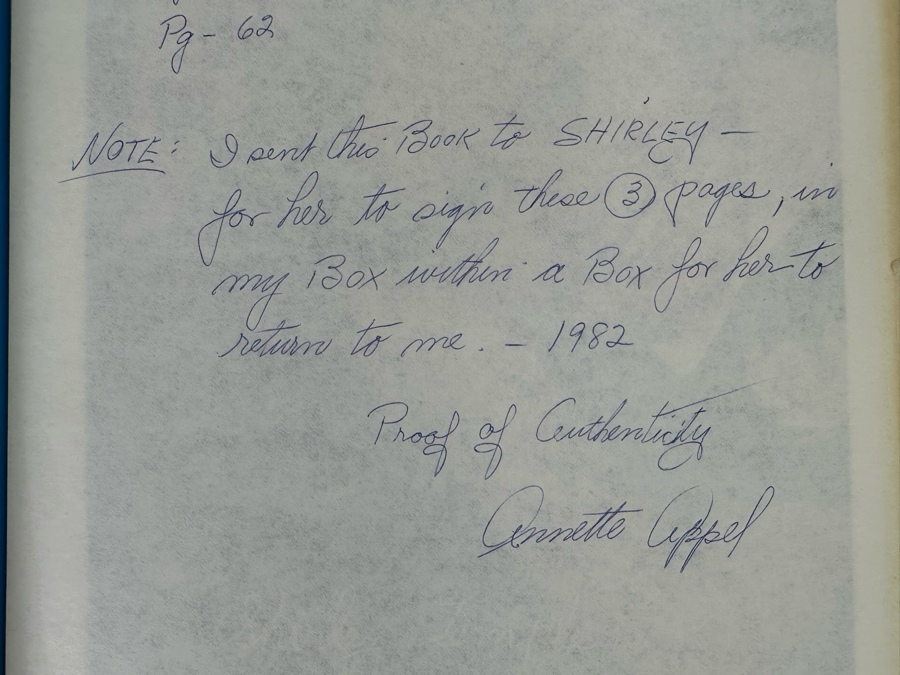 Pg - 62
NOTE: I sent this Book to SHIRLEY -
for her to sign these 3 pages, in
my Box within a Box for her to
return to me. - 1982
Proof of Authenticity
Annette Appel